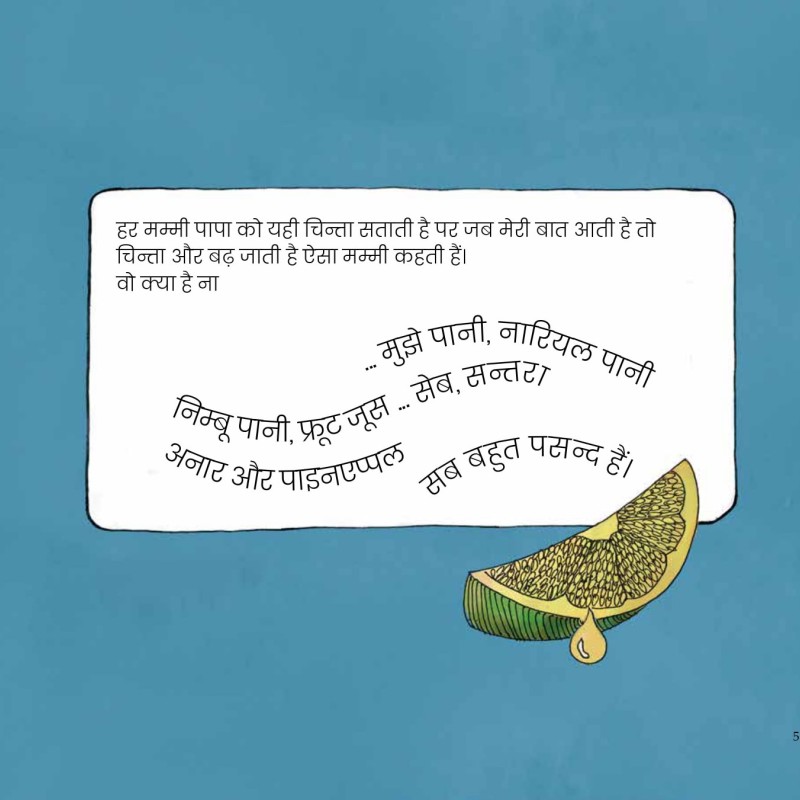 हर मम्मी पापा को यही चिन्ता सताती है पर जब मेरी बात आती है तो
चिन्ता और बढ़ जाती है ऐसा मम्मी कहती हैं।
वो क्या है ना
... मुझे पानी, नारियल पानी
निम्बू पानी, फ्रूट जूस ... सेब, सन्तरा
अनार और पाइनएप्पल
सब बहुत पसन्द हैं।
5